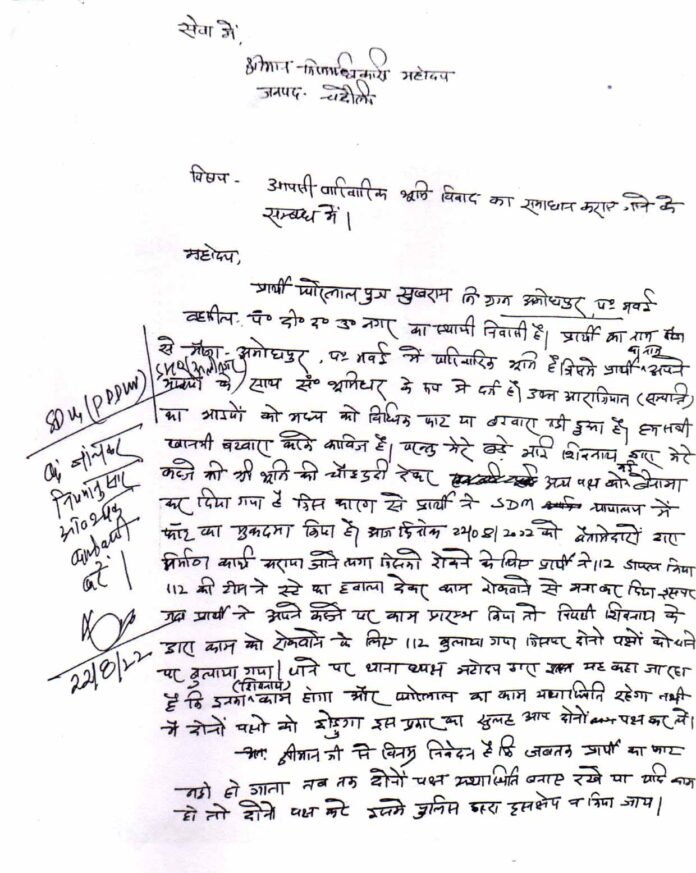 सेवा में,
श्रीमान जिलाधिकारी महोदय
जनपद- चंदौली
विषय - आपसी पारिवारिक भूमि विवाद का समाधान कराए जाने के
सम्बन्ध में।
महोदय,
प्रार्थी प्यारेलाल पुत्र सुखराम नि० ग्राम अमोघपुर, प० मवई
तहसील- पं० दी० द० उ० नगर का स्थायी निवासी है। प्रार्थी का
से मौजा- अमोघपुर, प० मवई में पारिवारिक भूमि है जिसमें प्रार्थी का नाम अपने
भाइयों के साथ सं० भूमिधर के रूप में दर्ज है। उक्त आराजियात (सम्पत्ति)
का भाइयों को मध्य को विधिक फाट या बटवारा नहीं हुआ है। हम सभी
खानगी बटवारा करके काबिज है। परन्तु मेरे बड़े भाई शिवनाथ द्वारा मेरे
कब्जे की भी भूमि की चौहद्दी देकर अन्य पक्ष को बैनामा
कर दिया गया है जिस कारण से प्रार्थी ने SDM न्यायालय में
फाँट का मुकदमा किया है। आज दिनांक 22/08/2022 को बैनामेदारों द्वारा
निर्माण कार्य कराया जाने लगा जिसको रोकने के लिए प्रार्थी ने 112 डायल किया
112 की टीम ने स्टे का हवाला देकर काम रोकवाने से मना कर दिया इसपर
जब प्रार्थी ने अपने कब्जे पर काम प्रारम्भ किया तो विपक्षी शिवनाथ के
द्वारा काम को रोकवाने के लिए 112 बुलाया गया जिसपर दोनो पक्षों को थाने
पर बुलाया गया। थाने पर थानाध्यक्ष महोदय द्वारा यह कहा जा रहा
है कि इनका (शिवनाथ) काम होगा और प्यारेलाल का काम यथास्थिति रहेगा तभी
मैं दोनों पक्षों को छोडुगा इस प्रकार का सुलह आप दोनों पक्ष कर लें।
अतः श्रीमान जी से विनम्र निवेदन है कि जबतक प्रार्थी का फाट
नही हो जाता तब तक दोनों पक्ष यथास्थिति बनाए रखे या यदि काम
हो तो दोनो पक्ष करे इसमे पुलिस द्वारा हस्तक्षेप न किया जाय।
SDM (PDDUN)
जाँचकर
नियमानुसार
आवश्यक
कार्यवाही
करें।
22/8/22